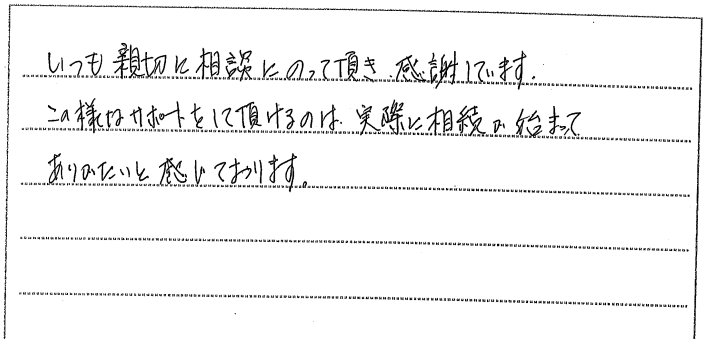 いつも親切に相談にのって頂き、感謝しています。
この様なサポートをして頂けるのは、実際に相続が始まって
ありがたいと感じております。